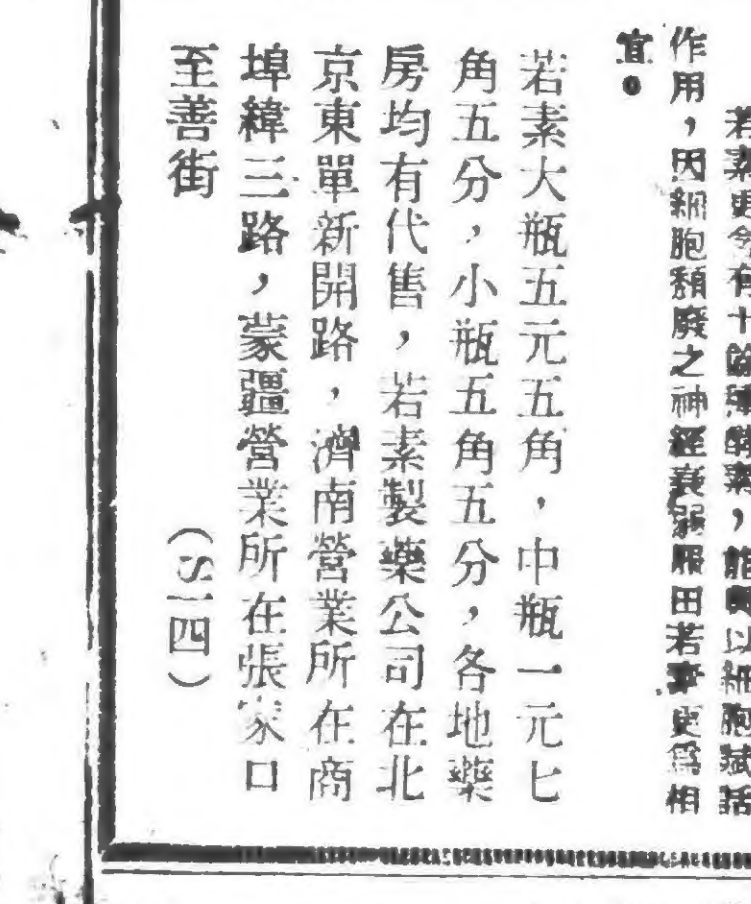 若素更含有十餘種酵素，能與以細胞賦活
作用，因細胞頹廢之神經衰弱服用若素更爲相
宜。
若素大瓶五元五角，中瓶一元七
角五分，小瓶五角五分，各地藥
房均有代售，若素製藥公司在北
京東單新開路，濟南營業所在商
埠緯三路，蒙疆營業所在張家口
至善街　（S一四）